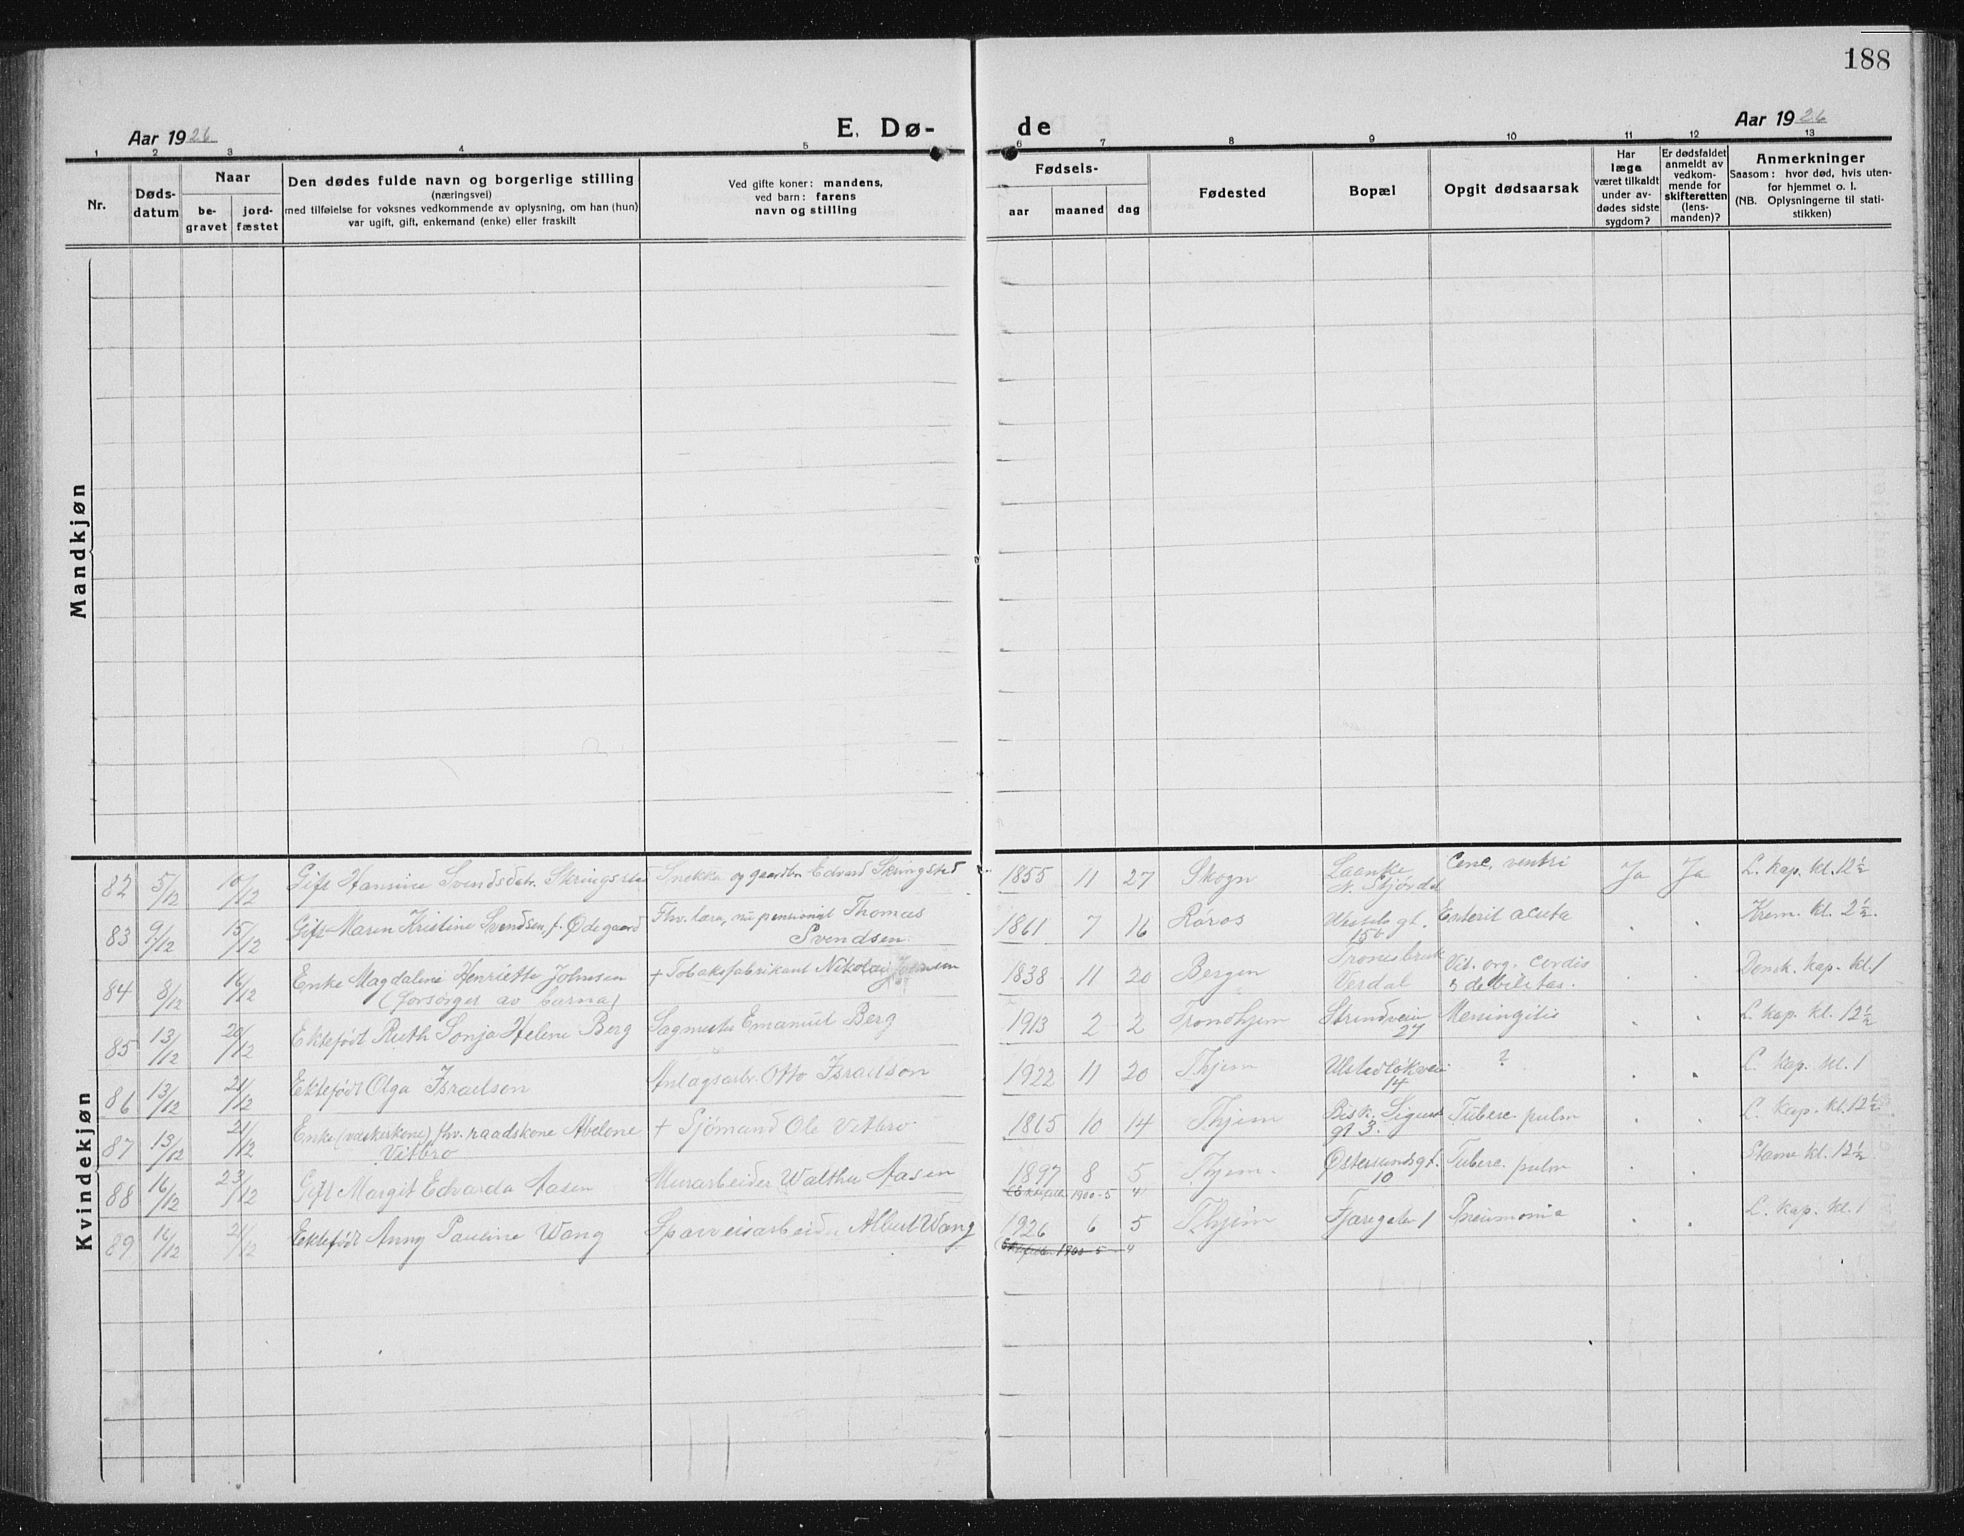 188
Aar 1926
E. Dø-
de
Aar 1926
1 2 3 4 5 6 7 8 9 10 11 12 13
Nr.
Døds-
datum
Naar
be-
gravet
jord-
fæstet
Den dødes fulde navn og borgerlige stilling
(næringsvei)
med tilføielse for voksnes vedkommende av oplysning, om han (hun)
var ugift, gift, enkemand (enke) eller fraskilt
Ved gifte koner: mandens,
ved barn: farens
navn og stilling
Fødsels-
aar
maaned
dag
Fødested
Bopæl
Opgit dødsaarsak
Har
læge
været tilkaldt
under av-
dødes sidste
sygdom?
Er dødsfaldet
anmeldt av
vedkom-
mende for
skifteretten
(lens-
manden)?
Anmerkninger
Saasom: hvor død, hvis uten-
for hjemmet o. l.
(NB. Oplysningerne til stati-
stikken)
Mandkjøn
Kvindekjøn
82 5/12 10/12 Gift Hansine Svendsdatr. Snekker og gaardbr. Edvard Skringstad 1855 11 27 Skogn Laanke N. Stjördal Canc. ventri Ja Ja L. kap. kl. 12 1/2
83 9/12 15/12 Gift Maren Kristine Svendsen, f. Ødegaard Fhv. nu pensionist Thomas
Svendsen. 1861 7 16 Röros gt. 15b Enterit acuta Krem. kl. 2 1/2.
84 8/12 16/12 Enke Magdalene Henriette Johnsen + Tobaksfabrikant Nikolai Johnsen 1838 11 20 Bergen Tronesbruk Vit. org. cordis Domk. kap. kl. 1
(forsörget av barna) Verdal & debilitas.
85 13/12 20/12 Ektefødt Ruth Sonja Helene Berg Sagmester Emanuel Berg 1913 2 2 Trondhjem Strindveien 27 Meningitis L. kap. kl. 12 1/2
86 13/12 21/12 Ektefødt Olga Israelson Anlagsarb. Otto Israelson 1922 11 20 Thjem 14 ? L. kap. kl. 1
87 13/12 21/12 Enke (vaskerkone) fhv. raadskone Abelone + Sjömand Ole Vitbro 1865 10 14 Thjem Bisk. Sigurds Tuberc. pulm L. kap. kl. 12 1/2
Vitbro gt 3.
88 16/12 23/12 Gift Margit Edvarda Aasen Murarbeider Walther Aasen 1897 8 5 Thjem. Østersundsgt. 10 Tuberc. pulm Stavne kl. 12 1/2
1900-5 4
89 16/12 21/12 Ektefødt Anny Pauline Wang Sporveisarbeider Albert Wang 1926 6 5 Thjem Fjæregaten 1 Pneumonie L. kap. kl. 1
1900-5-4